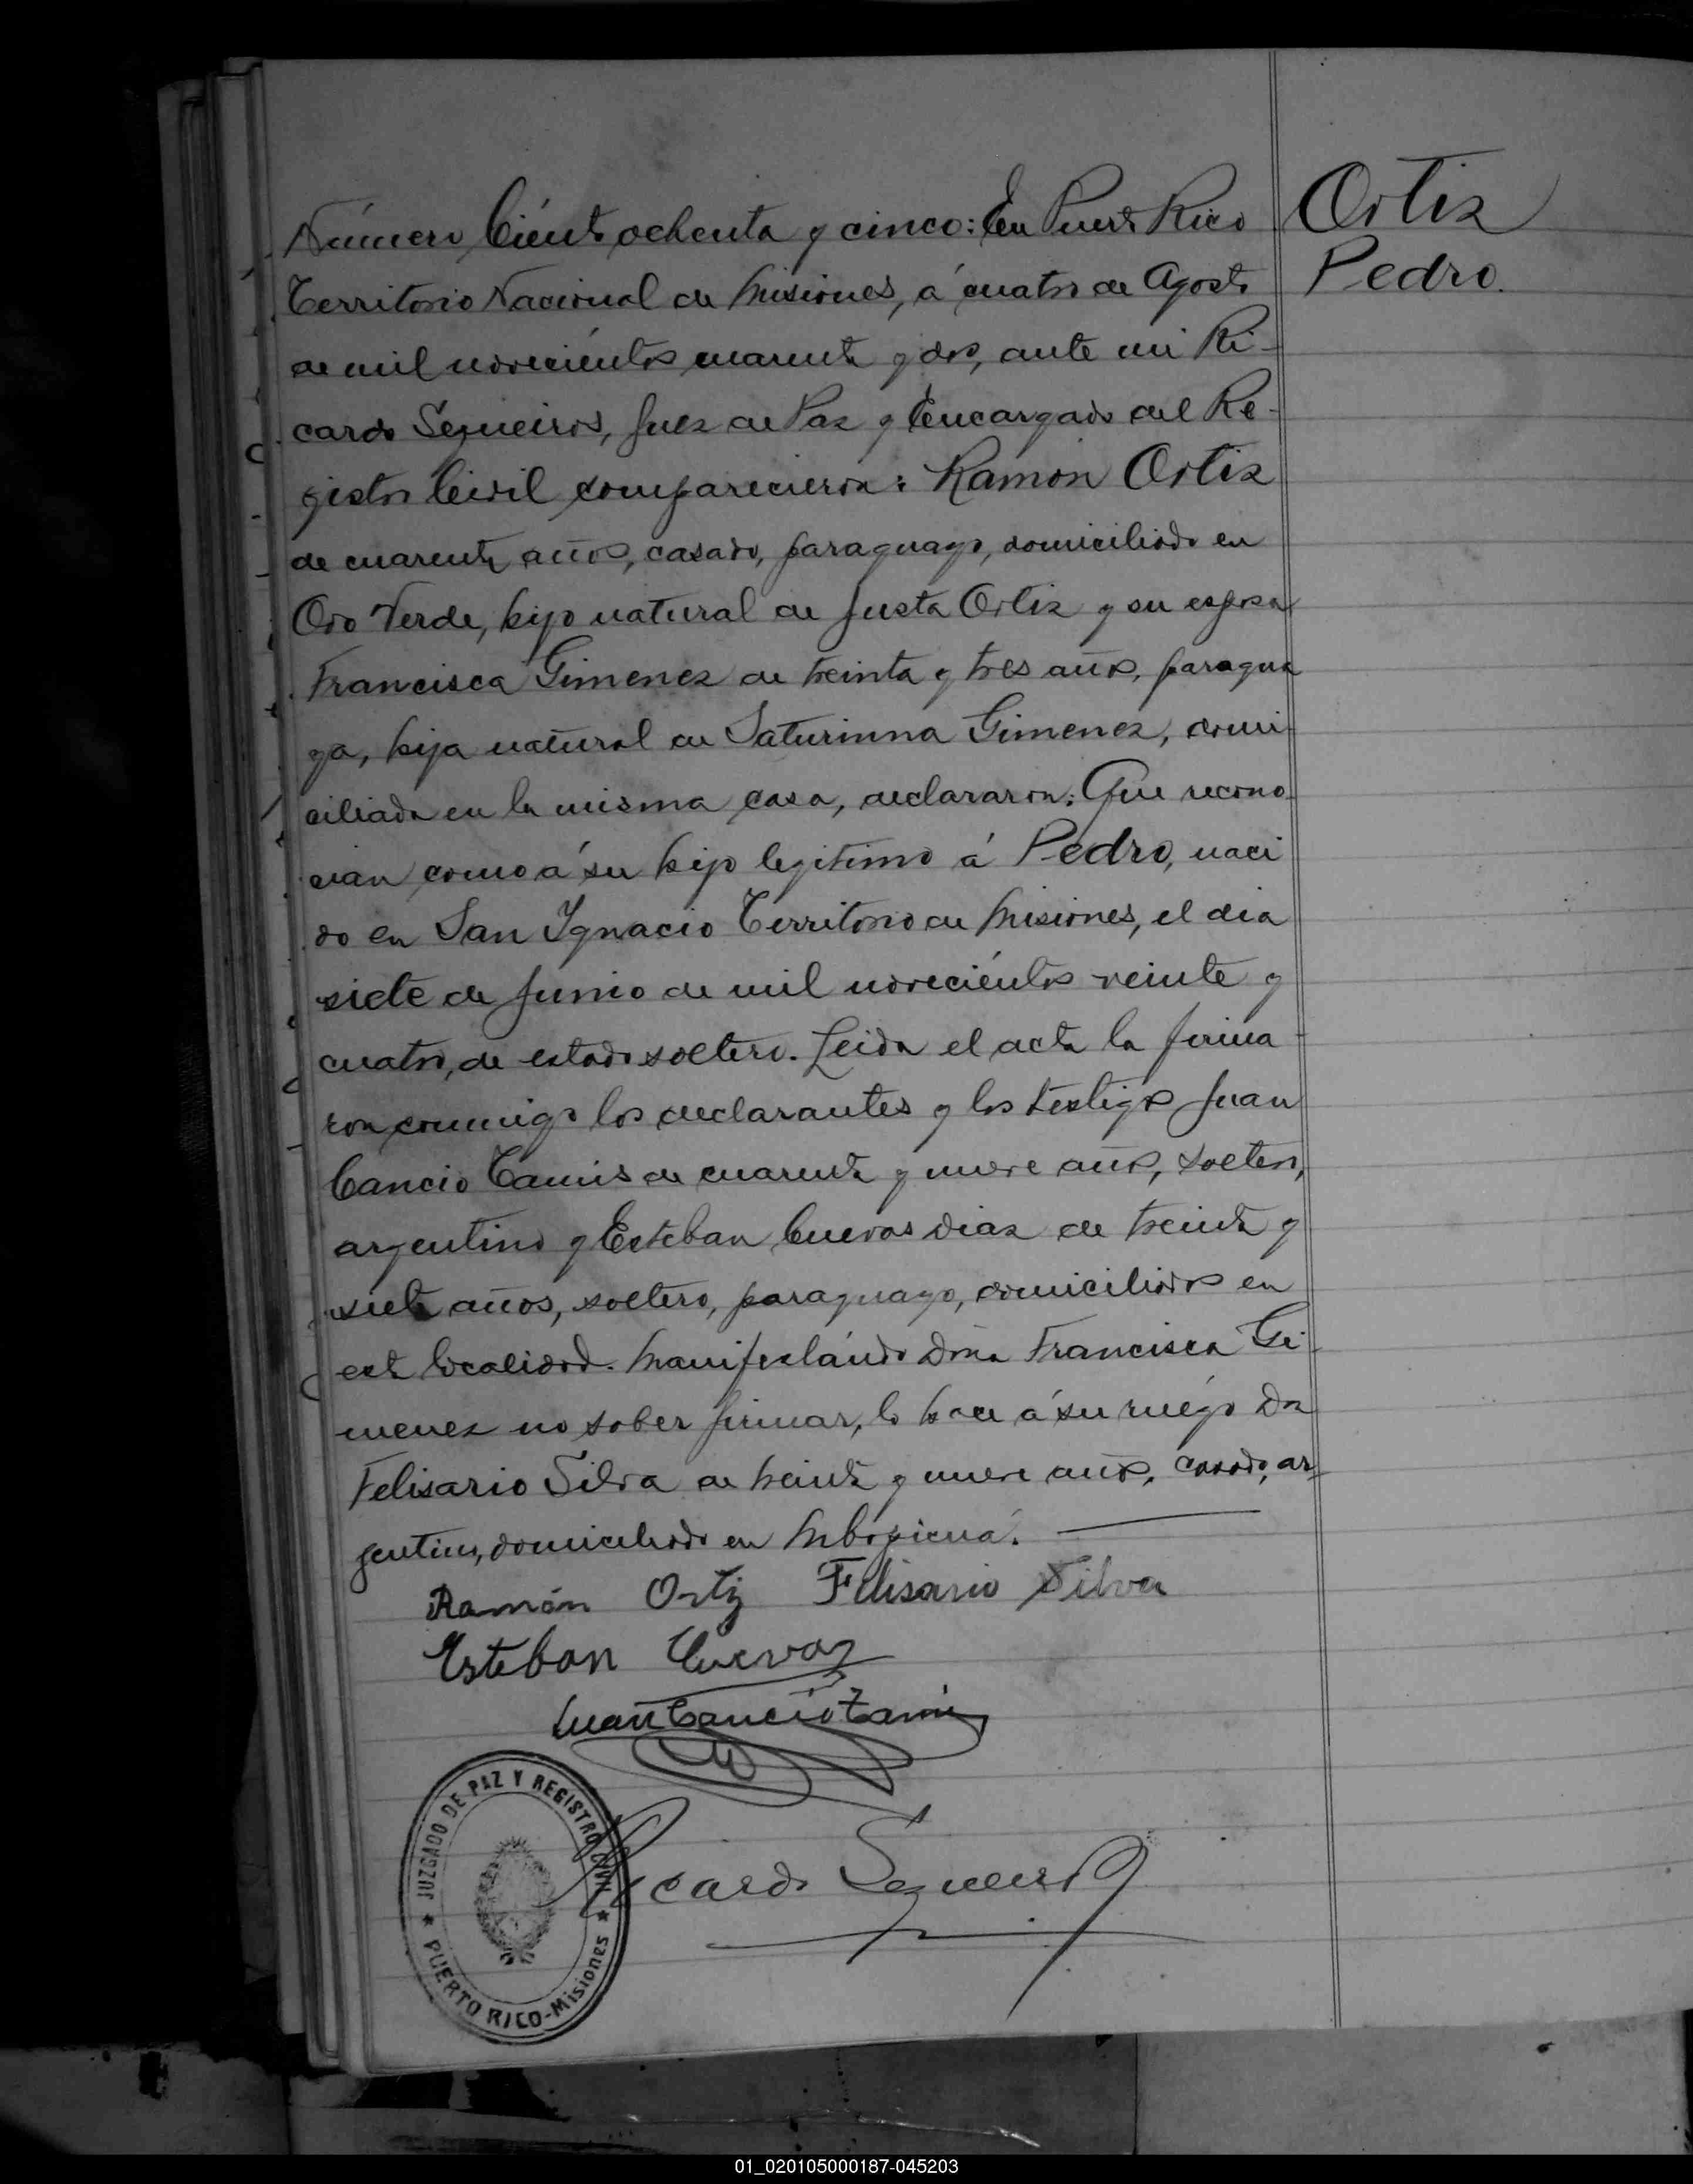 Ortiz
Pedro.
Número Ciénto ochenta y cinco: En Puerto Rico
Territorio Nacional de Misiones, á cuatro de Agosto
de mil noveciéntos cuarenta y dos, ante mi Ri-
cardo Sequeiros, Juez de Paz y Encargado del Re-
gistro Civil comparecieron: Ramón Ortiz
de cuarenta años, casado, paraguayo, domiciliado en
Oro Verde, hijo natural de Justa Ortiz y su esposa
Francisca Gimenez de treinta y tres años, paragua
ya, hija natural de Saturnina Gimenez, domi
ciliada en la misma casa, declararon: Que recono
cian como á su hijo legitimo á Pedro, naci
do en San Ygnacio Territorio de Misiones, el dia
siete de Junio de mil noveciéntos veinte y
cuatro, de estado soltero. Leida el acta la firma-
ron conmigo los declarantes y los testigos Juan
Cancio Tamis de cuarenta y nueve años, soltero,
argentino y Esteban Cuevas Diaz de treinta y
siete años, soltero, paraguayo, domiciliados en
esta localidad. Manifestándo Doña Francisca Gi-
menez no saber firmar, lo hace á su ruégo Dn
Felisario Silva de treinta y nueve años, casado, ar-
gentino, domiciliado en Mbopicuá.
Ramón Ortiz Felisario Silva
Esteban Cuevas
Juan Cancio Tamis
Ricardo Sequeiros
JUZGADO DE PAZ Y REGISTRO CIVIL
PUERTO RICO-Misiones
01_020105000187-045203